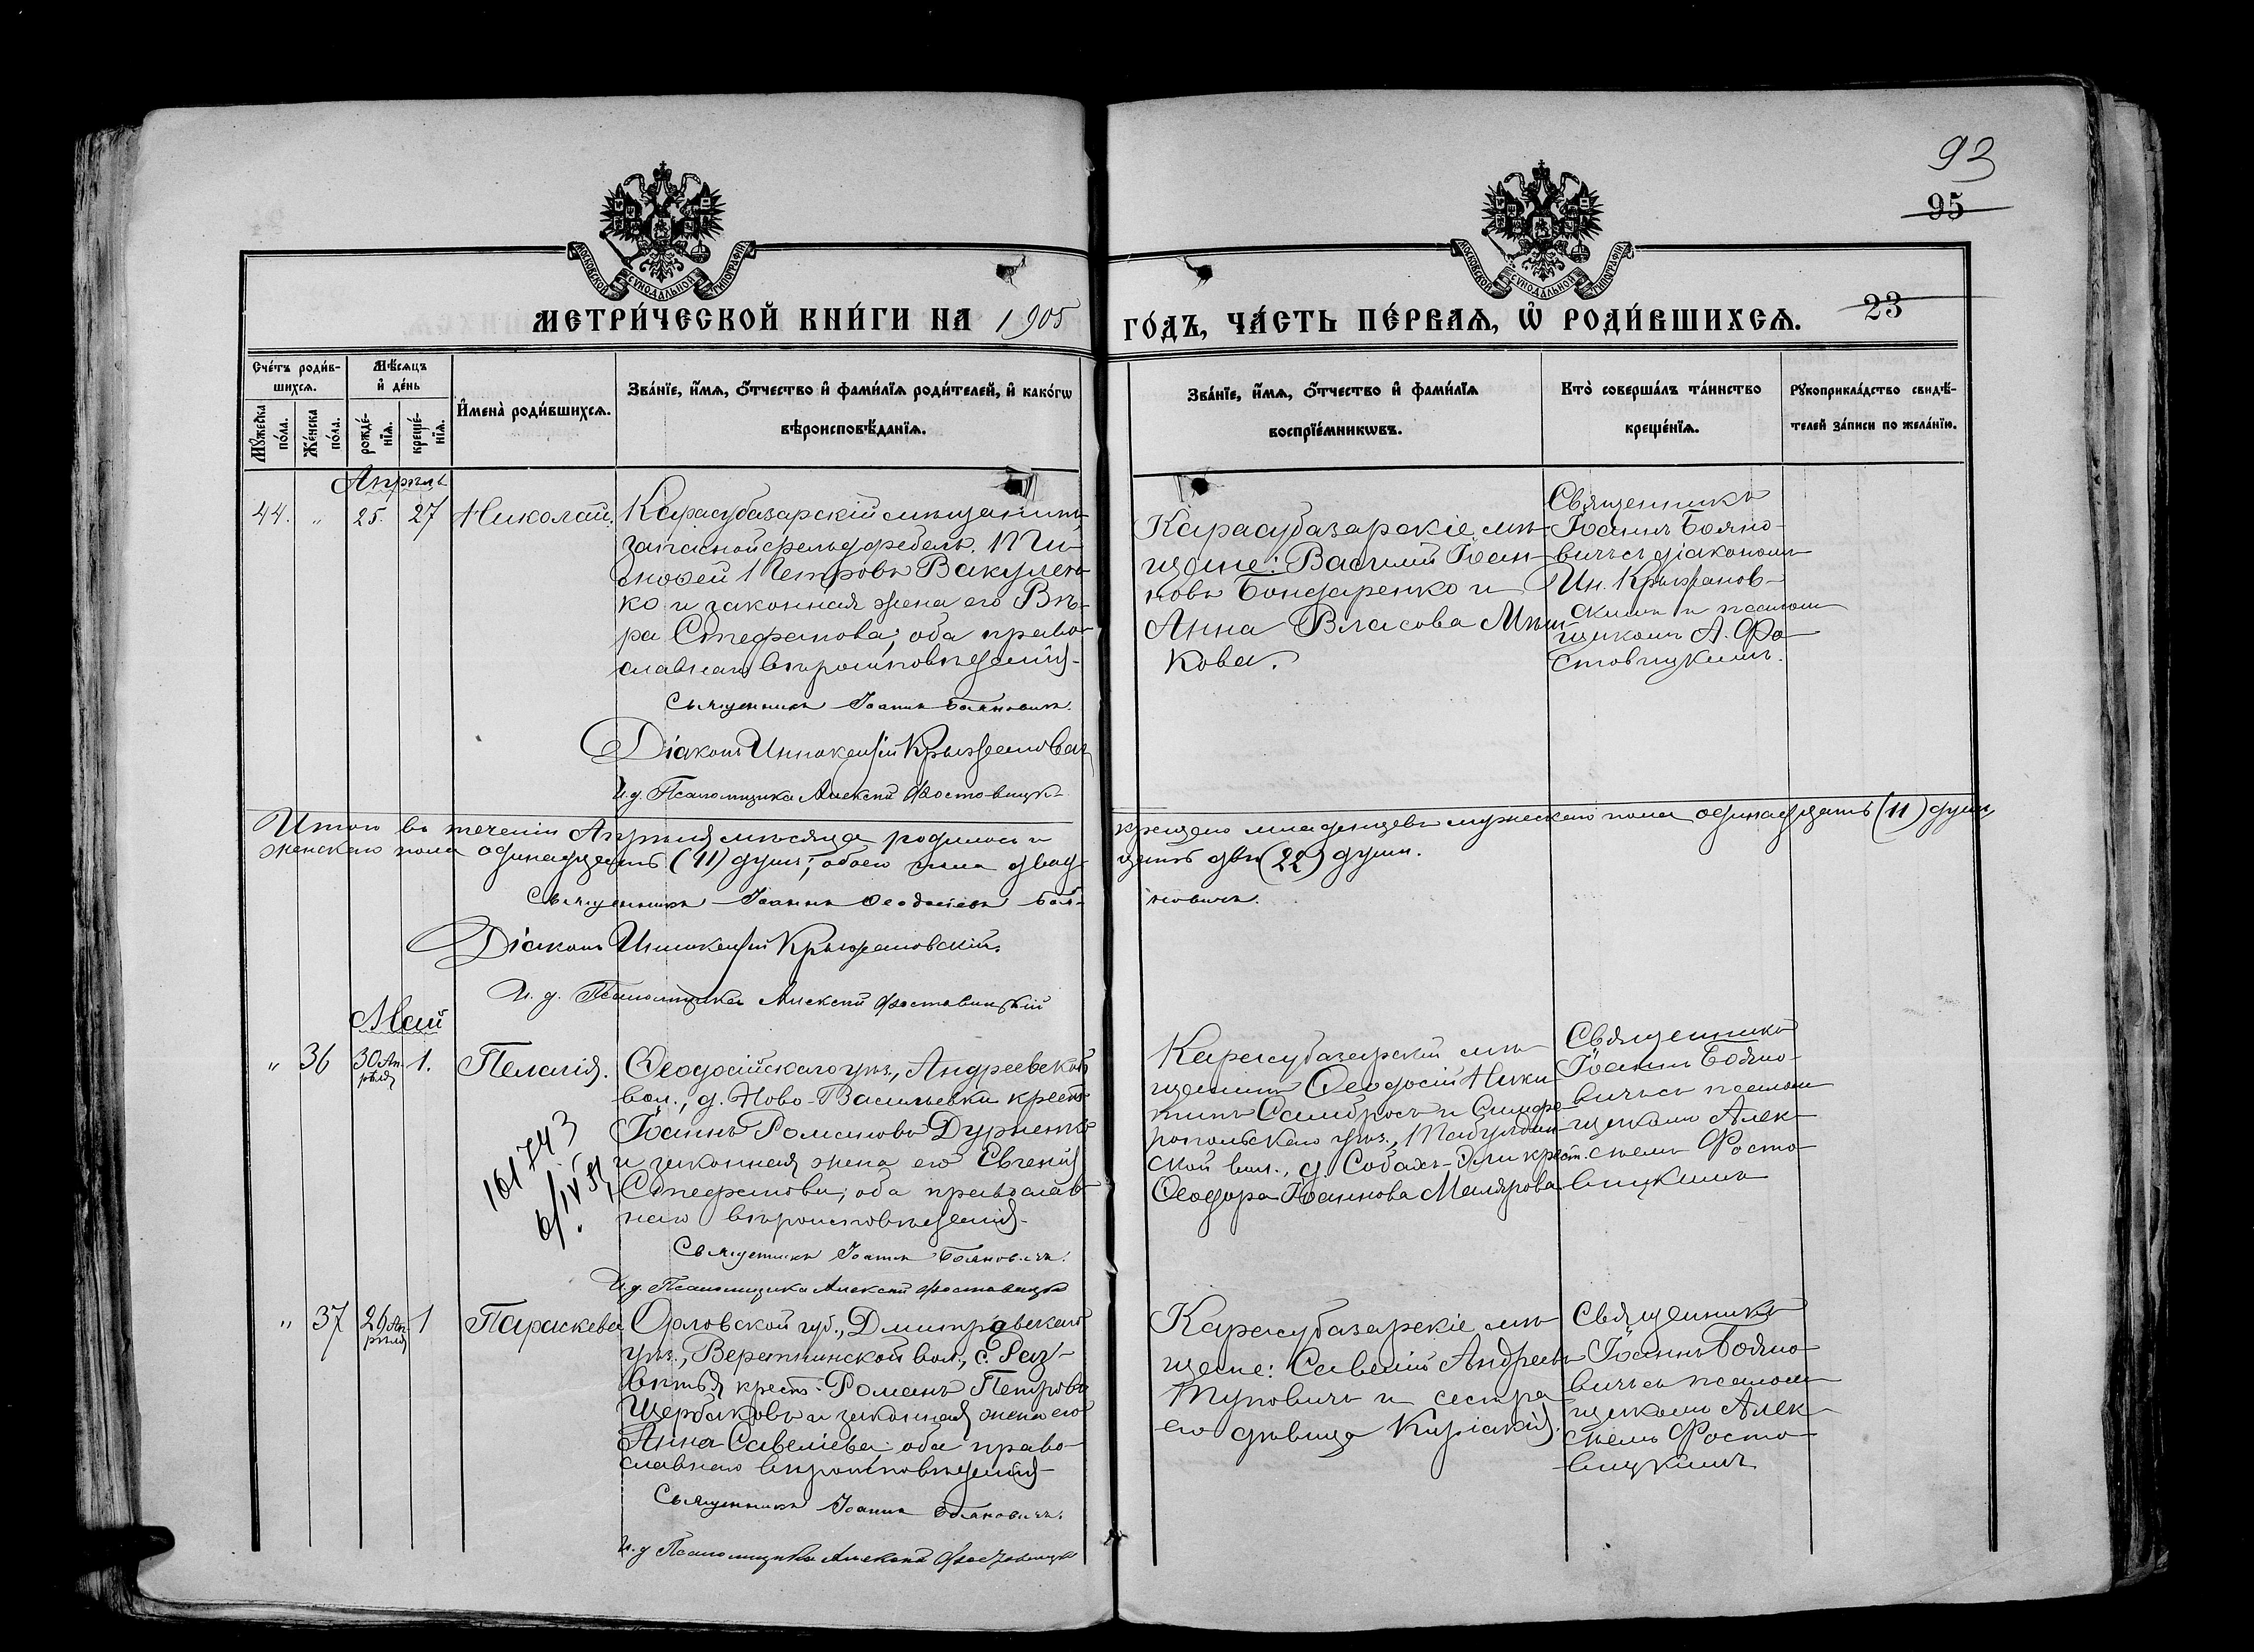 93
95
МОСКОВСКОЙ СѴНОДАЛЬНОЙ ТИПОГРАФІИ
МОСКОВСКОЙ СѴНОДАЛЬНОЙ ТИПОГРАФІИ
МЕТРИ́ЧЕСКОЙ КНИ́ГИ НА 1905
ГО́ДЪ, ЧА́СТЬ ПЕ́РВАѦ, Ѡ҆ РОДИ́ВШИХСѦ. 23
Сче́тъ роди́в-
шихсѧ.
Мꙋ́жеска по́ла.
Же́нска по́ла.
Мѣ́сѧцъ
и҆ де́нь
рожде́-
нїѧ.
креще́-
нїѧ.
И҆мена̀ роди́вшихсѧ.
Зва́нїе, и҆́мѧ, ѻ҆́тчество и҆ фами́лїѧ роди́телей, и҆ како́гѡ
вѣроисповѣ́данїѧ.
Зва́нїе, и҆́мѧ, ѻ҆́тчество и҆ фами́лїѧ
воспрїе́мникѡвъ.
Кто̀ соверша́лъ та́инство
креще́нїѧ.
Рꙋкоприкла́дство свидѣ́-
телей за́писи по жела́нїю.
Апрѣль
44. „ 25. 27 Николай.
Карасубазарскій мѣщанинъ,
запасной фельдфебель Ти-
моѳей Петровъ Вакулен-
ко и законная жена его Вѣ-
ра Стефанова; оба право-
славнаго вѣроисповѣданія.
Священникъ Іоаннъ Бояновичъ.
Діаконъ Иннокентій Крыжановскій
И. д. Псаломщика Алексѣй Фостовицкій
Карасубазарскіе мѣ-
щане: Василій Іоан-
новъ Бондаренко и
Анна Власова
кова.
Священникъ
Іоаннъ Бояно-
вичъ съ діакономъ
Ин. Крыжанов-
скимъ и псалом-
щикомъ А. Фо-
стовицкимъ.
Итого въ теченіи Апрѣля мѣсяца родилось и
крещено младенцевъ мужескаго пола одинадцать (11) душъ
женскаго пола одинадцать (11) душъ; обоего пола двад-
цать двѣ (22) души.
Священникъ Іоаннъ Ѳеодосіевъ Боя-
новичъ.
Діаконъ Иннокентій Крыжановскій.
И. д. Псаломщика Алексѣй Фостовицкій
Май
„ 36 30 Ап-
рѣля 1. Пелагія.
161743
6/IV 51
Ѳеодосійскаго уѣз., Андреевской
вол., д. Ново-Васильевки крест.
Іоаннъ Романовъ
и законная жена его Евгенія
Стефанова; оба православ-
наго вѣроисповѣданія.
Священникъ Іоаннъ Бояновичъ.
И. д. Псаломщика Алексѣй Фостовицкій
Карасубазарскій мѣ-
щанинъ Ѳеодосій Ники-
тинъ и Симфе-
ропольскаго уѣз., Табулдин-
ской вол., д. крест.
Ѳеодора Іоаннова Малярова
Священникъ
Іоаннъ Бояно-
вичъ съ псалом-
щикомъ Алек-
сѣемъ Фосто-
вицкимъ
„ 37 26 Ап-
рѣля 1 Параскева
Орловской губ., Дмитровскаго
уѣз., Веретнинской вол., с. Раз-
вѣтья крест. Романъ Петровъ
Щербаковъ и законная жена его
Анна Савеліева оба право-
славнаго вѣроисповѣданія
Священникъ Іоаннъ Бояновичъ.
И. д. Псаломщика Алексѣй Фостовицкій
Карасубазарскіе мѣ-
щане: Савелій Андреевъ
Туповичъ и сестра
его дѣвица Киріакія.
Священникъ
Іоаннъ Бояно-
вичъ съ псалом-
щикомъ Алек-
сѣемъ Фосто-
вицкимъ